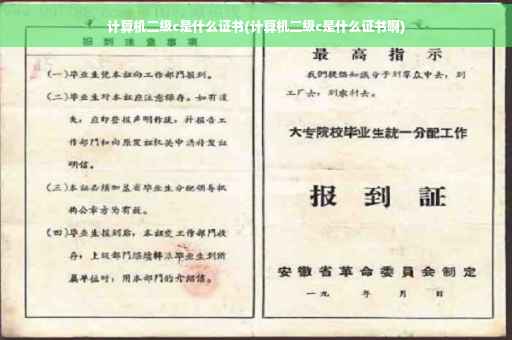 计算机二级c是什么证书(计算机二级c是什么证书啊)
报到注意事项
(一)毕业生凭本证向工作部门报到。
(二)毕业生对本证应注意保存。如有遗
失,应即登报声明作废,并报告工
作部门和向原发证机关申请补发证
明信。
(三)本证必须加盖省毕业生分配领导机
构公章方为有效。
(四)毕业生报到后,本证交工作部门收
存;上级部门
毕业生到所
属单位时,用本部门的介绍信。
最高指示
我们提倡知识分子到群众中去,到
工厂去,到农村去。
大专院校毕业生統一分配工作
报到証
安徽省革命委員会制定
一九 年 月 日